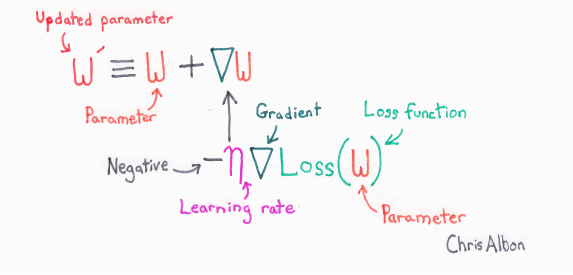 Updated parameter
W′ ≡ W + ∇W
Parameter
Gradient
Loss function
Negative
-η∇Loss(W)
Learning rate
Parameter
Chris Albon